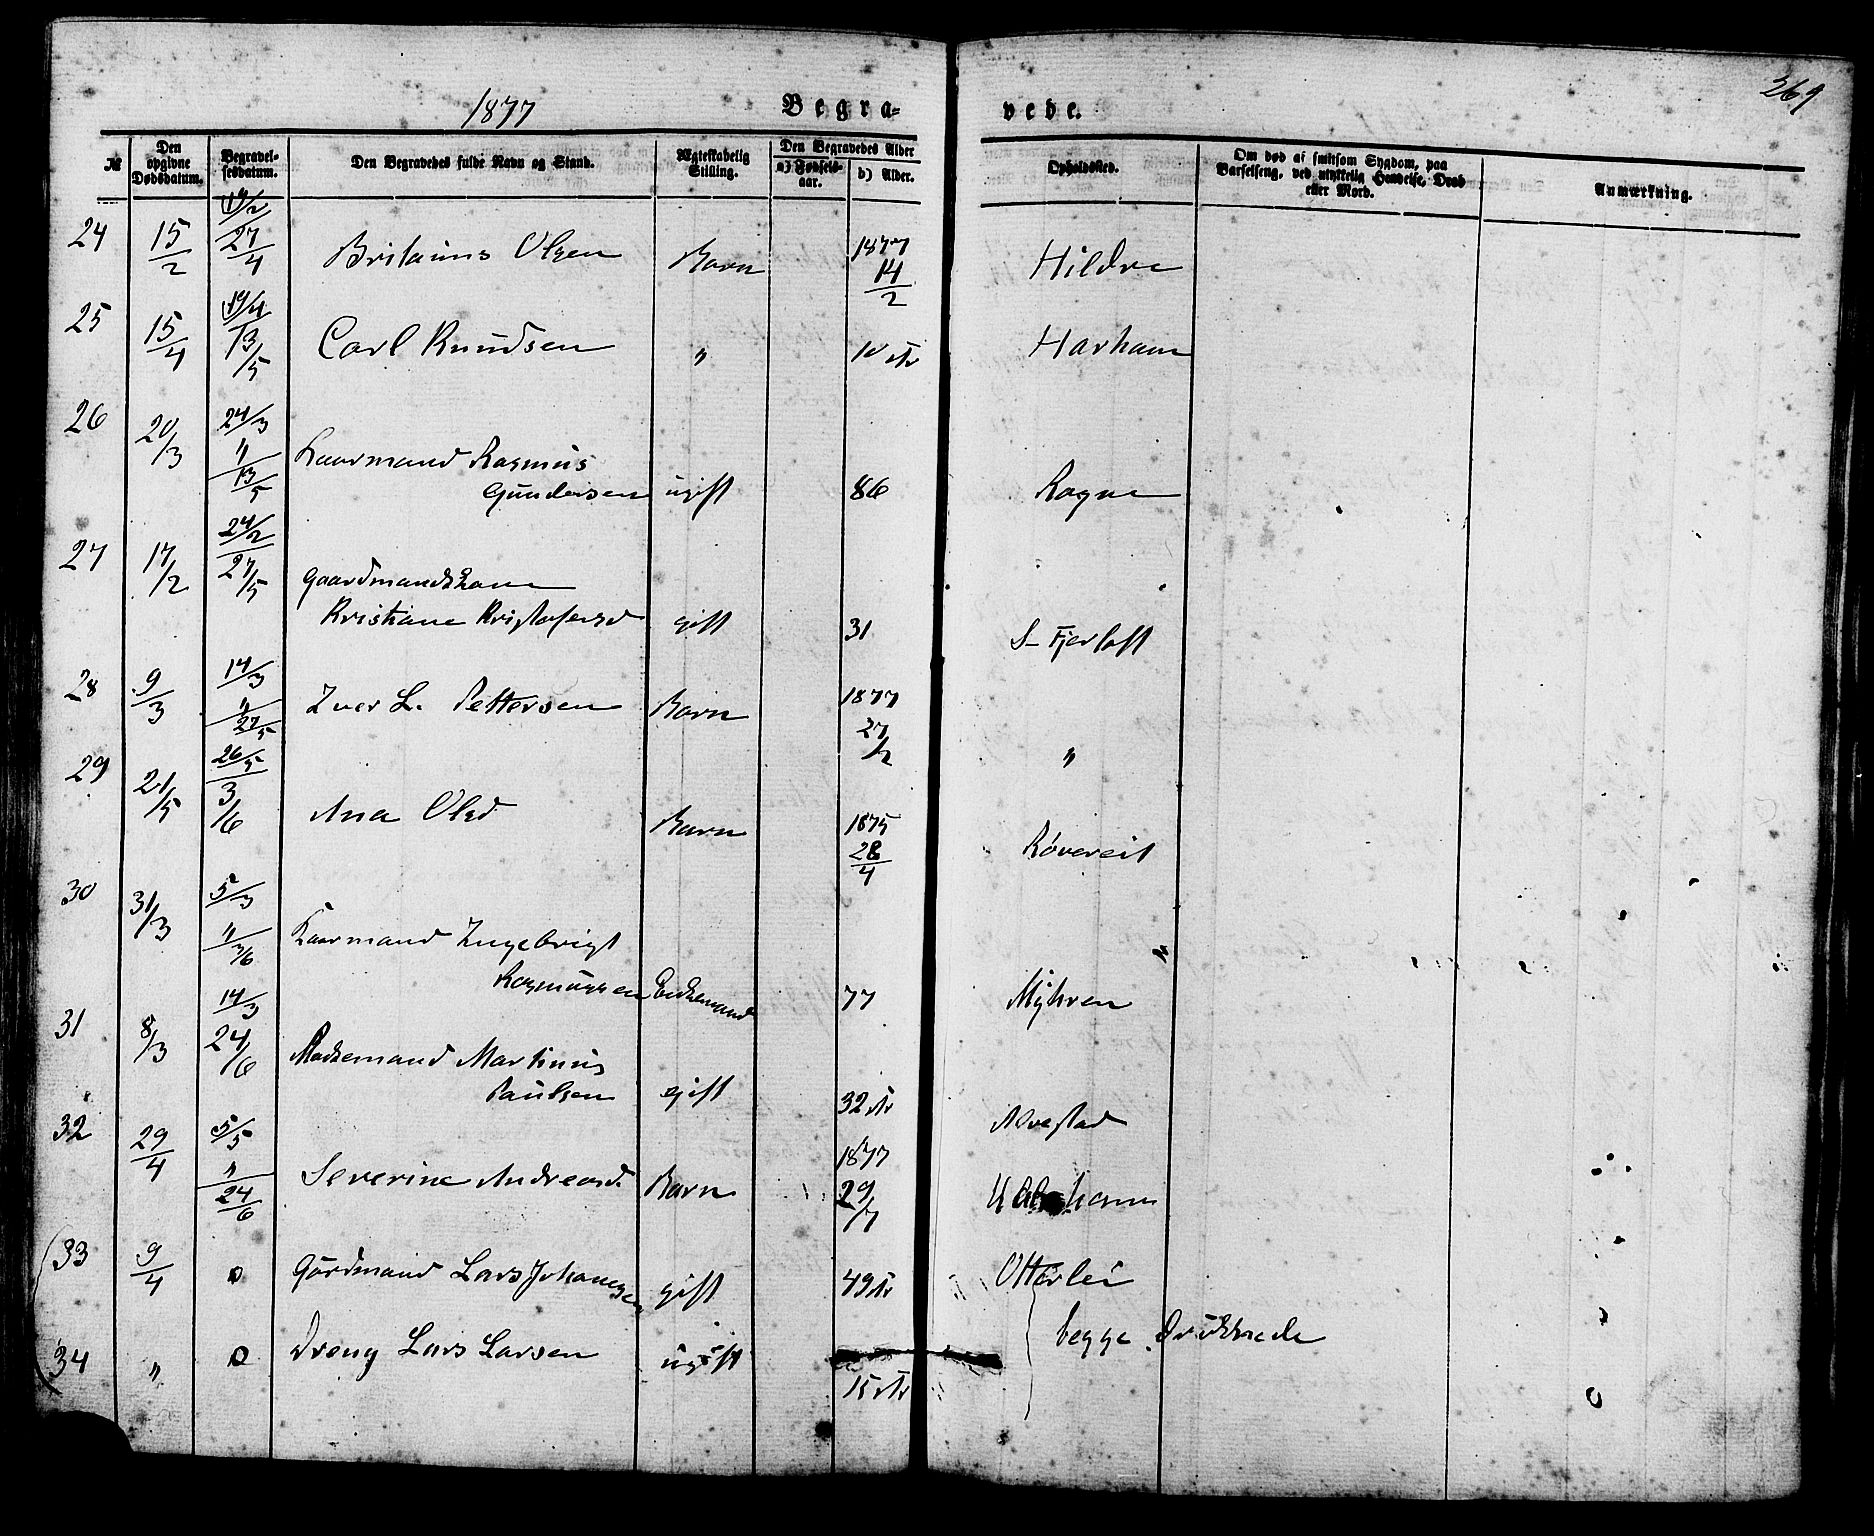 1877 Begra- vede. 269
№ Den opgivne Dødsdatum. Begravelsesdatum. Den Begravedes fulde Navn og Stand. Ægteskabelig Stilling. Den Begravedes Alder a) Fødselsaar. b) Alder. Opholdssted. Om død af smitsom Sygdom, paa Barselseng, ved ulykkelig Hendelse, Drab eller Mord. Anmærkning.
24 15/2 27/4 Olsen Barn 1877 14/2 Hildre
25 15/4 13/5 Carl Knudsen " 10 Harham
26 20/3 24/3 " 13/5 Kaarmand Rasmus
Gundersen ugift 86 Rogne
27 17/2 24/2 27/5 Gaardmandskone
Kristiane Kristofersd gift 31 S- Fjertoft
28 9/3 14/3 " 27/5 Iver L. Pettersen Barn 1877 27/2 "
29 21/5 26/5 3/6 Ana Olsd Barn 1875 28/4 Røvereit
30 31/3 5/3 " 3/6 Kaarmand Ingebrigt
Rasmussen Enkemand 77 Myhren
31 8/3 14/3 24/6 Martinus
Paulsen gift 32
32 29/4 5/5 " 24/6 Severine Andreasd. Barn 1877 29/7
33 9/4 0 Gårdmand Lars Johansen gift 49 Otterlei
34 " 0 Dreng Lars Larsen ugift 15 begge Druknede